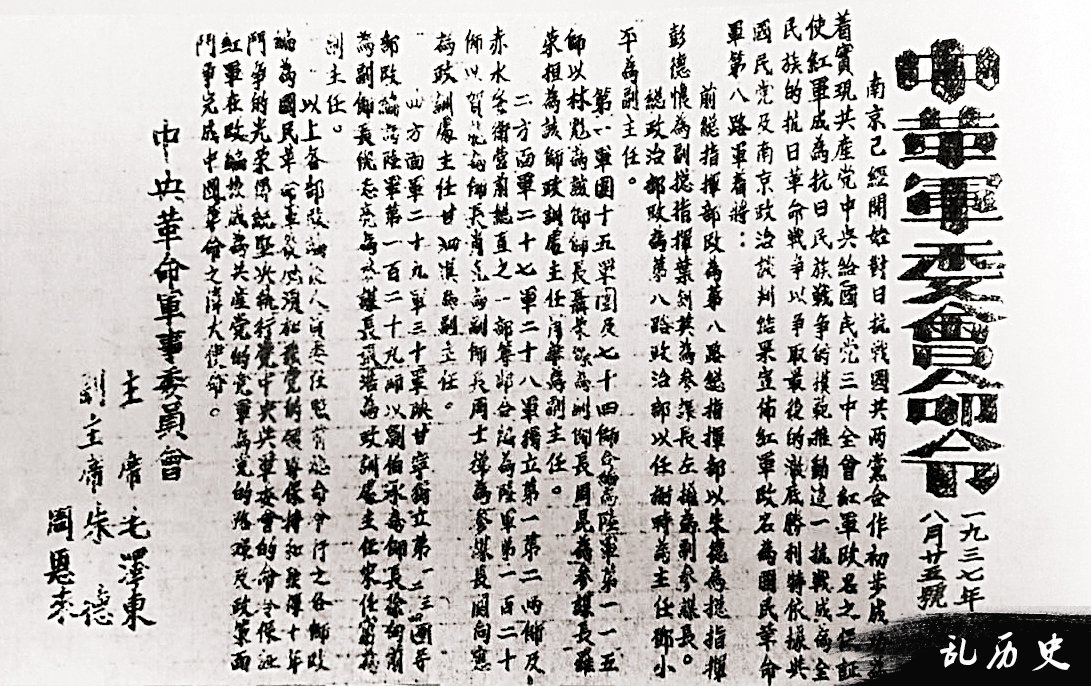 中華軍委會命令
一九三七年
八月廿五號
南京已經開始對日抗戰國共两黨合作初步成
着實現共產党中央給國民党三中全會紅軍改名之保証
使紅軍成為抗日民族戰爭的模範推動這一抗戰成為全
民族的抗日革命戰爭以爭取最後的澈底勝利特依據共
國民党及南京政治談判結果宣佈紅軍改名為國民革命
軍第八路軍着將：
前總指揮部改為第八路總指揮部以朱德為總指揮
彭德懷為副總指揮葉劍英為參謀長左權為副參謀長。
總政治部改為第八路政治部以任弼時為主任鄧小
平為副主任。
第一軍團十五軍團及七十四師合編為陸軍第一一五
師以林彪為該師師長聶榮臻為副師長周昆為參謀長羅
榮桓為該師政訓處主任蕭華為副主任。
二方面軍二十七軍二十八軍獨立第一第二兩師及
赤水警衛營前總直之一部等部合編為陸軍第一百二十
師以賀龍為師長肖克為副師長周士梯為參謀長関向應
為政訓處主任甘泗淇為副主任。
四方面軍二十九軍三十軍陝甘寧獨立第一二三四等
部改編為陸軍第一百二十九師以劉伯承為師長徐向前
為副師長倪志亮為參謀長張浩為政訓處主任宋任窮為
副主任。
以上各部改編後人員委任照前總命令行之各師改
編為國民革命軍後必須加強党的領導保持和發揮十年
鬥爭的光榮傳統堅决執行党中央與軍委會的命令保証
紅軍在改編後成為共產党的党軍為党的路線及政策而
鬥爭完成中國革命之偉大使命。
中央革命軍事委員會
主席毛澤東
副主席朱德
周恩來
乱历史